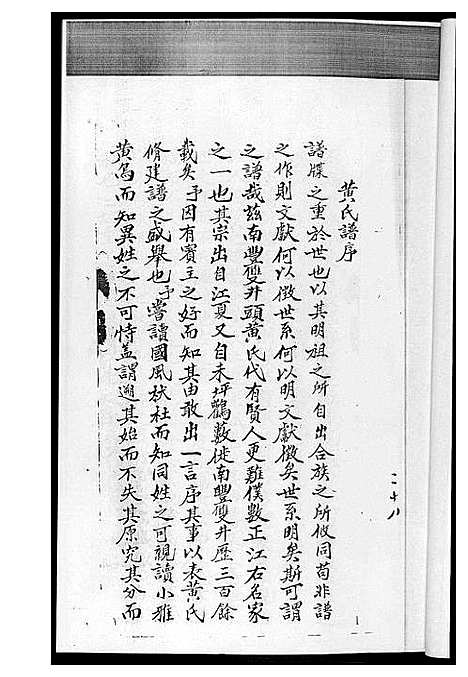 黃氏譜序
譜牒之重於世也以其明祖之所自出合族之所攸同茍非譜
之作則文獻何以徵世系何以明文獻徵矣世系明矣斯可謂
之譜哉茲南豐雙井頭黃氏代有賢人更難僕數正江右名家
之一也其宗出自江夏又自未坪鸛數徙南豐雙井歷三百餘
載矣予因有賓主之好而知其由敢出一言序其事以表黃氏
脩建譜之盛舉也予嘗讀國風杕杜而知同姓之可親讀小雅
黃鳥而知異姓之不可恃蓋謂遡其始而不失其原究其分而
二十八